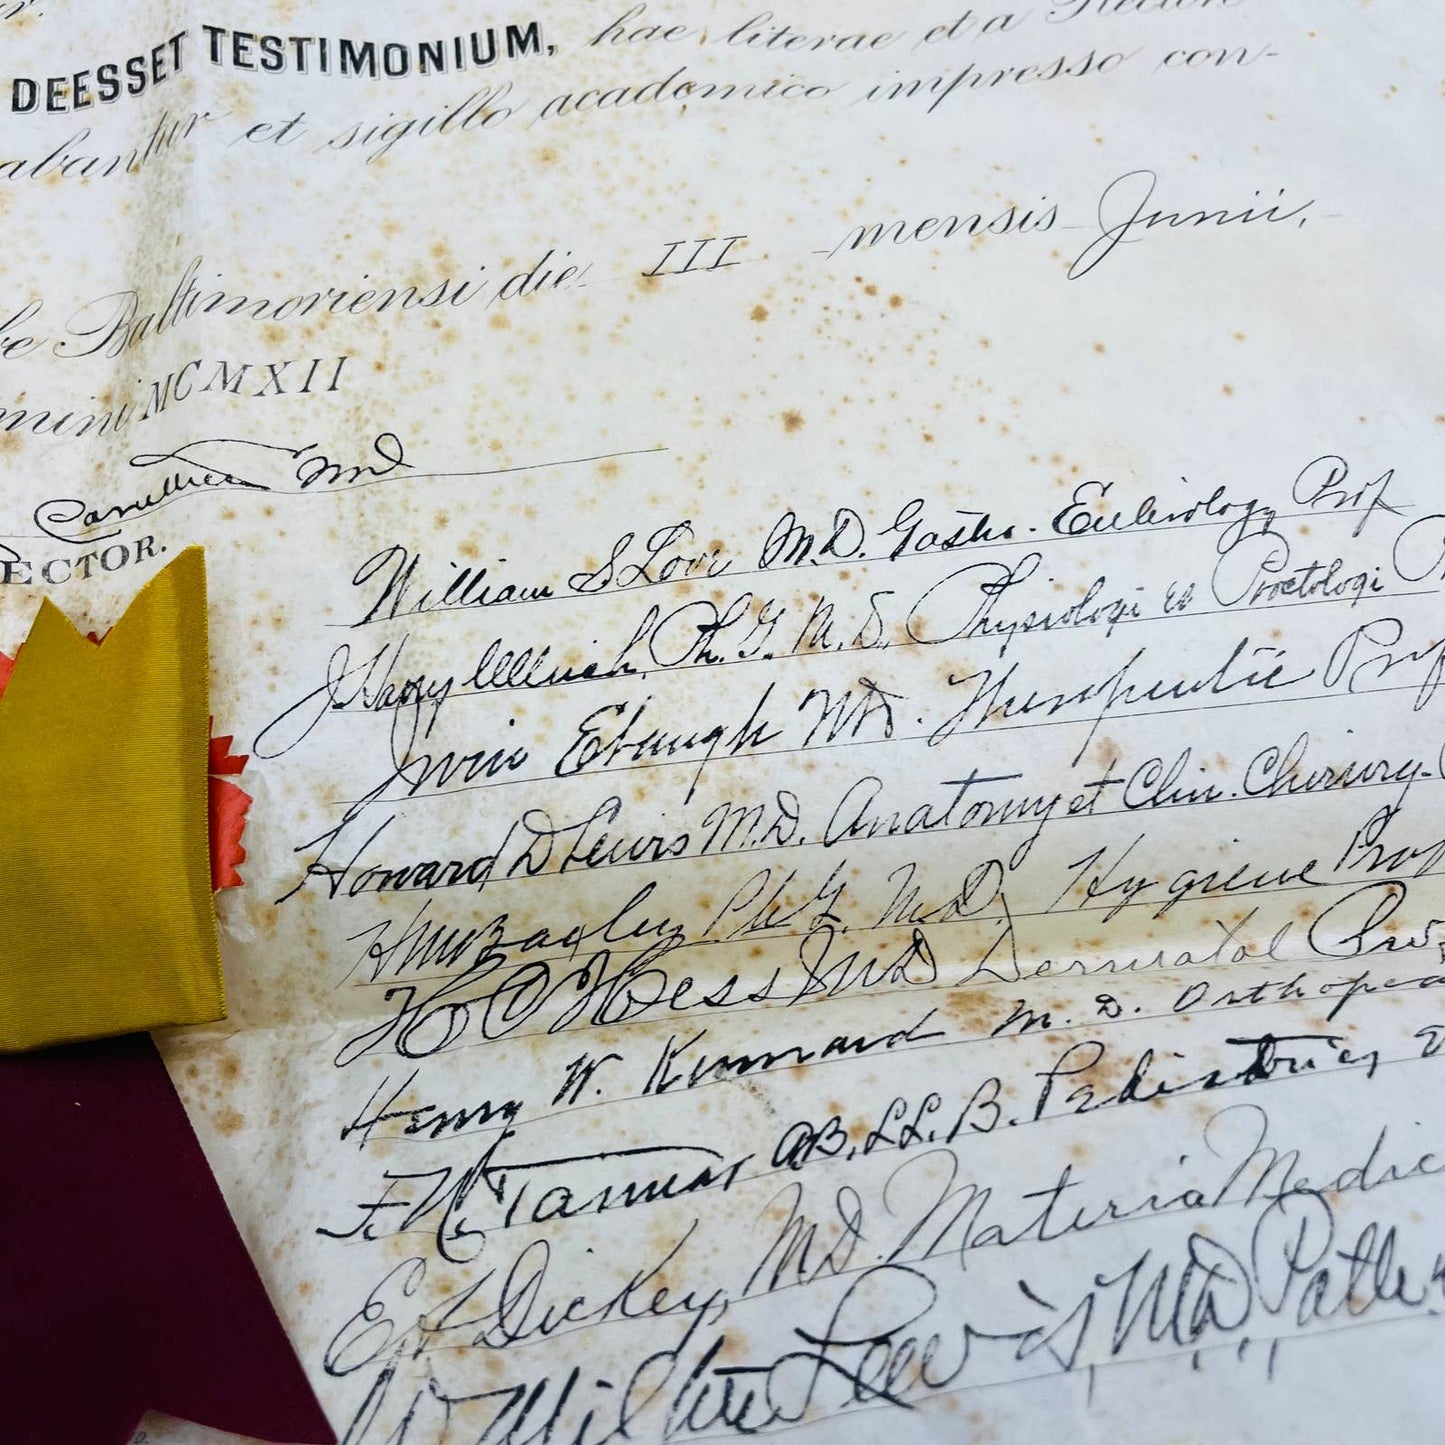 DEESSET TESTIMONIUM, hae literae et a Rectore
abantur et sigillo academico impresso con-
be Baltimoriensi die III mensis Junii,
mini MCMXII
MD
ECTOR.
William S Love M.D. Gastro-Enterology Prof
J Harry Ullrich, Ph.G. M.D. Physiologi et Proctologi
Irvin Ebaugh MD. Therapeutic Prof
Howard D Lewis M.D. Anatomy et Clin. Chirurg.
Ph G. M.D. Hygiene Prof
H O Hess MD Dermatol Prof
Henry W. Kennard M.D. Orthopea
F. H. Tannar AB, LL.B. Pediatrics,
E A Dickey, MD. Materia Medic
W Milton Lewis, MD Path